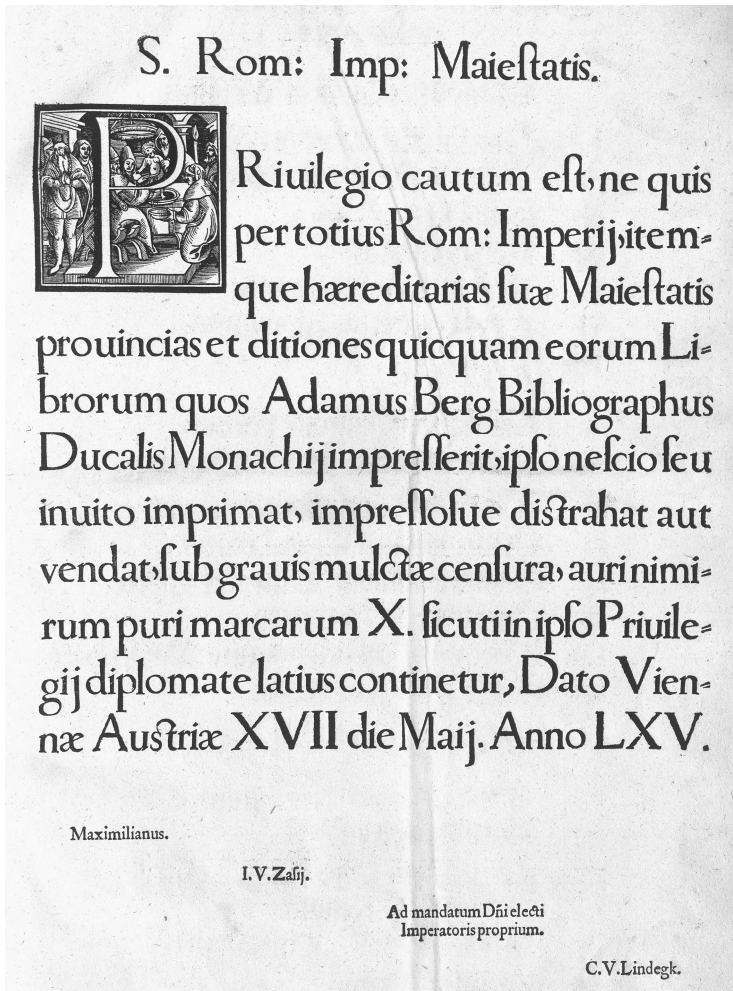 S. Rom: Imp: Maieſtatis.
PRiuilegio cautum eſt, ne quis
per totius Rom: Imperij, item-
que hæreditarias ſuæ Maieſtatis
prouincias et ditiones quicquam eorum Li-
brorum quos Adamus Berg Bibliographus
Ducalis Monachij impreſſerit, ipſo neſcio ſeu
inuito imprimat, impreſſoſue distrahat aut
vendat, ſub grauis mulctæ cenſura, auri nimi-
rum puri marcarum X. ſicuti in ipſo Priuile-
gij diplomate latius continetur, Dato Vien-
næ Austriæ XVII die Maij. Anno LXV.
Maximilianus.
I. V. Zaſij.
Ad mandatum Dñi electi
Imperatoris proprium.
C. V. Lindegk.